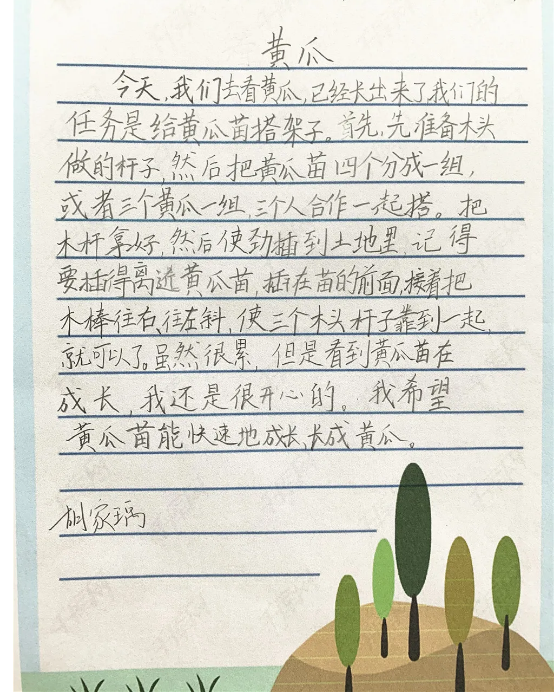 黄瓜
今天,我们去看黄瓜,已经长出来了我们的
任务是给黄瓜苗搭架子。首先,先准备木头
做的杆子,然后把黄瓜苗四个分成一组,
或者三个黄瓜一组,三个人合作一起搭。把
木杆拿好,然后使劲插到土地里,记得
要插得离远黄瓜苗,插在苗的前面,接着把
木棒往右,往左斜,使三个木头杆子靠到一起,
就可以了。虽然很累,但是看到黄瓜苗在
成长,我还是很开心的。我希望
黄瓜苗能快速地成长,长成黄瓜。
胡家瑀